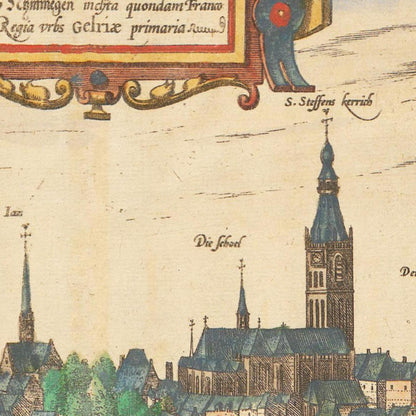 Nÿmmegen inclita quondam Franco
Regia vrbs Gelriæ primaria
S. Steffens kerrich
Ian
Die schoel
De